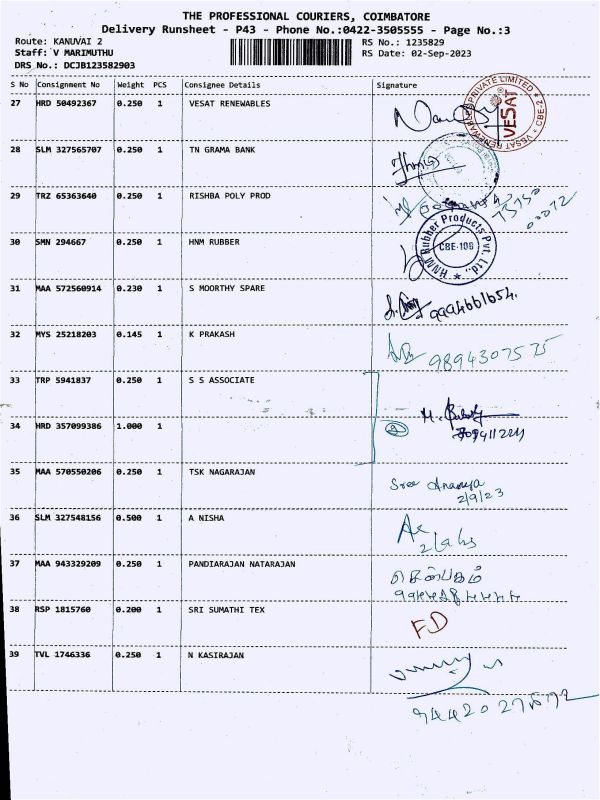 THE PROFESSIONAL COURIERS, COIMBATORE
Delivery Runsheet - P43 - Phone No.:0422-3505555 - Page No.:3
Route: KANUVAI 2
Staff: V MARIMUTHU
DRS No.: DCJB123582903
RS No.: 1235829
RS Date: 02-Sep-2023
S No Consignment No Weight PCS Consignee Details Signature
27 HRD 50492367 0.250 1 VESAT RENEWABLES
VESAT RENEWABLES PRIVATE LIMITED * CBE-2 *
VESAT
28 SLM 327565707 0.250 1 TN GRAMA BANK
29 TRZ 65363640 0.250 1 RISHBA POLY PROD
75750
00072
30 SMN 294667 0.250 1 HNM RUBBER
HNM Rubber Products Pvt. Ltd.,
CBE-108
31 MAA 572560914 0.230 1 S MOORTHY SPARE
9994661654.
32 MYS 25218203 0.145 1 K PRAKASH
9894307575
33 TRP 5941837 0.250 1 S S ASSOCIATE
34 HRD 357099386 1.000 1
35 MAA 570550206 0.250 1 TSK NAGARAJAN
Sree Ananya
2/9/23
36 SLM 327548156 0.500 1 A NISHA
37 MAA 943329209 0.250 1 PANDIARAJAN NATARAJAN
செண்பகம்
38 RSP 1815760 0.200 1 SRI SUMATHI TEX
FD
39 TVL 1746336 0.250 1 N KASIRAJAN